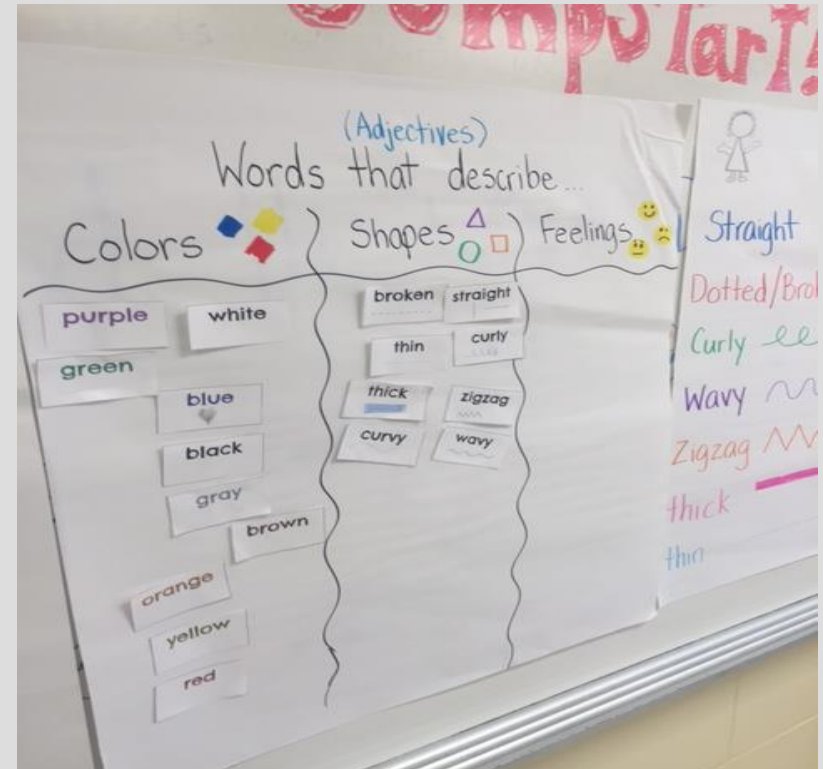 (Adjectives)
Words that describe...
Colors
Shapes
Feelings
purple
white
green
blue
black
gray
brown
orange
yellow
red
broken
straight
thin
curly
thick
zigzag
curvy
wavy
Straight
Curly
Wavy
Zigzag
thick
thin